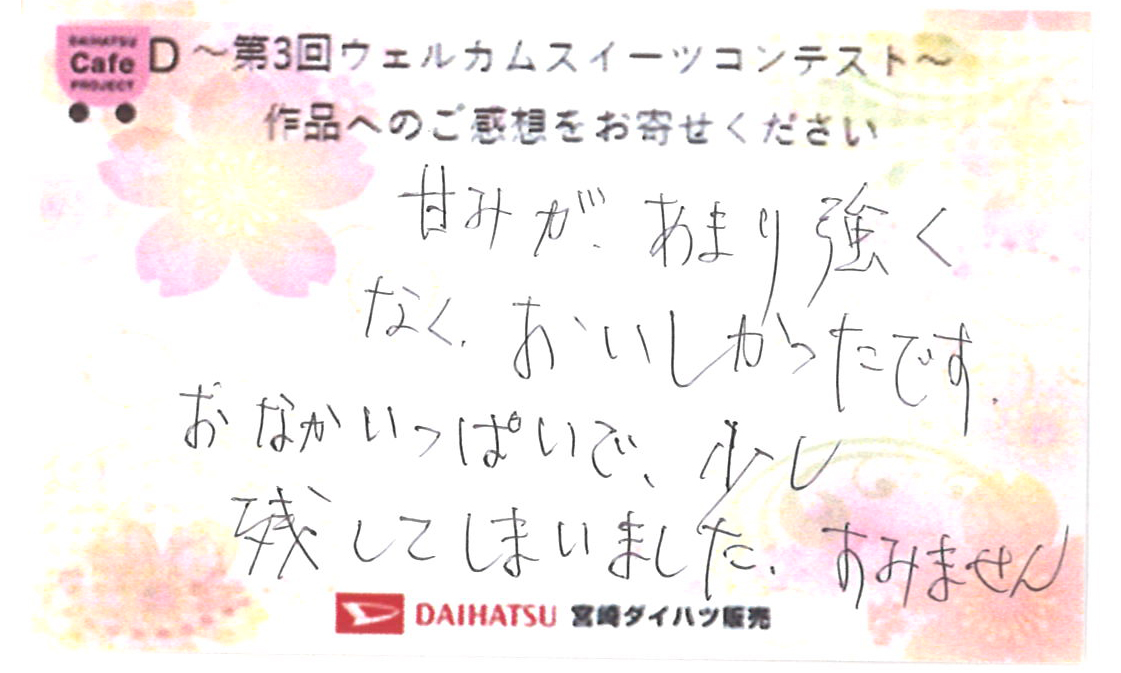 DAIHATSU
Cafe
PROJECT
D ～第3回ウェルカムスイーツコンテスト～
作品へのご感想をお寄せください
甘みが、あまり強く
なく、おいしかったです。
おなかいっぱいで、少し
残してしまいました、すみません
DAIHATSU 宮崎ダイハツ販売